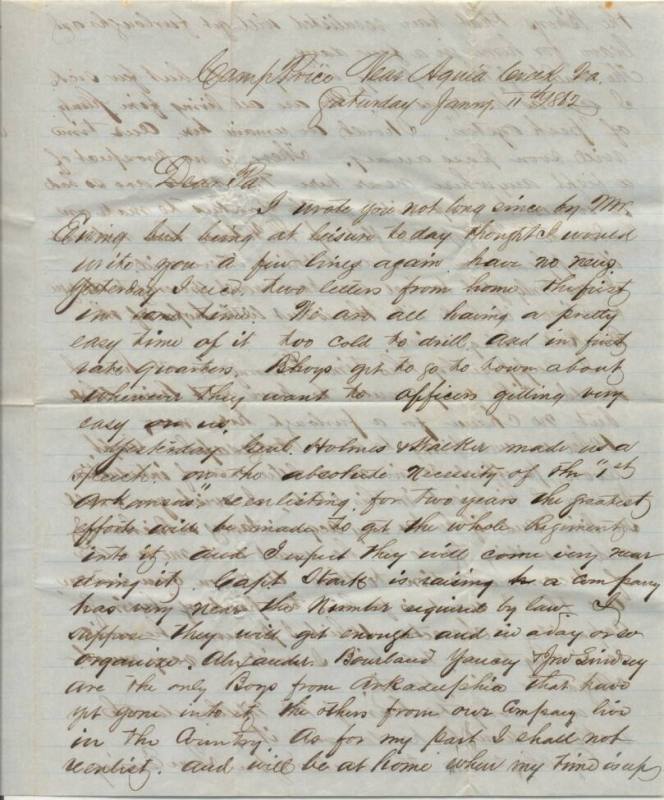 Camp Price Near Aquia Creek Va.
Saturday Janny. 11th 1862
Dear Pa
I wrote you not long since by Mr.
Ewing but being at leisure today thought I would
write you a few lines again. have no news.
Yesterday I recd. two letters from home the first
in some time. We are all having a pretty
easy time of it too cold to drill and in first
rate quarters. Boys get to go to town about
whenever they want to officers getting very
easy on us.
Yesterday Genl. Holmes & Walker made us a
speech on the absolute necessity of the "1st
Arkansas" reenlisting for two years the greatest
efforts will be made to get the whole Regiment
into it and I expect they will come very near
doing it. Capt. Stark is raising a company
has very near the number required by law. I
suppose they will get enough and in a day or so
organize. Alexander, Bourland Yancey & Jno Lindsey
are the only Boys from Arkadelphia that have
yet gone into it the others from our company live
in the Country. As for my part I shall not
reenlist. and will be at home when my time is up